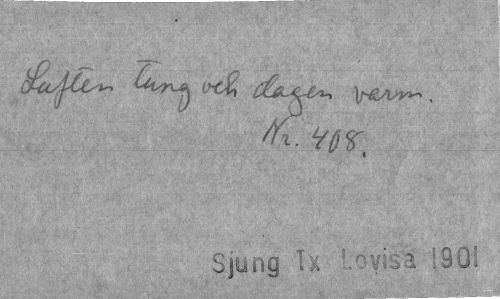 Luften tung och dagen varm.
Nr. 408.
Sjung Tx Lovisa 1901